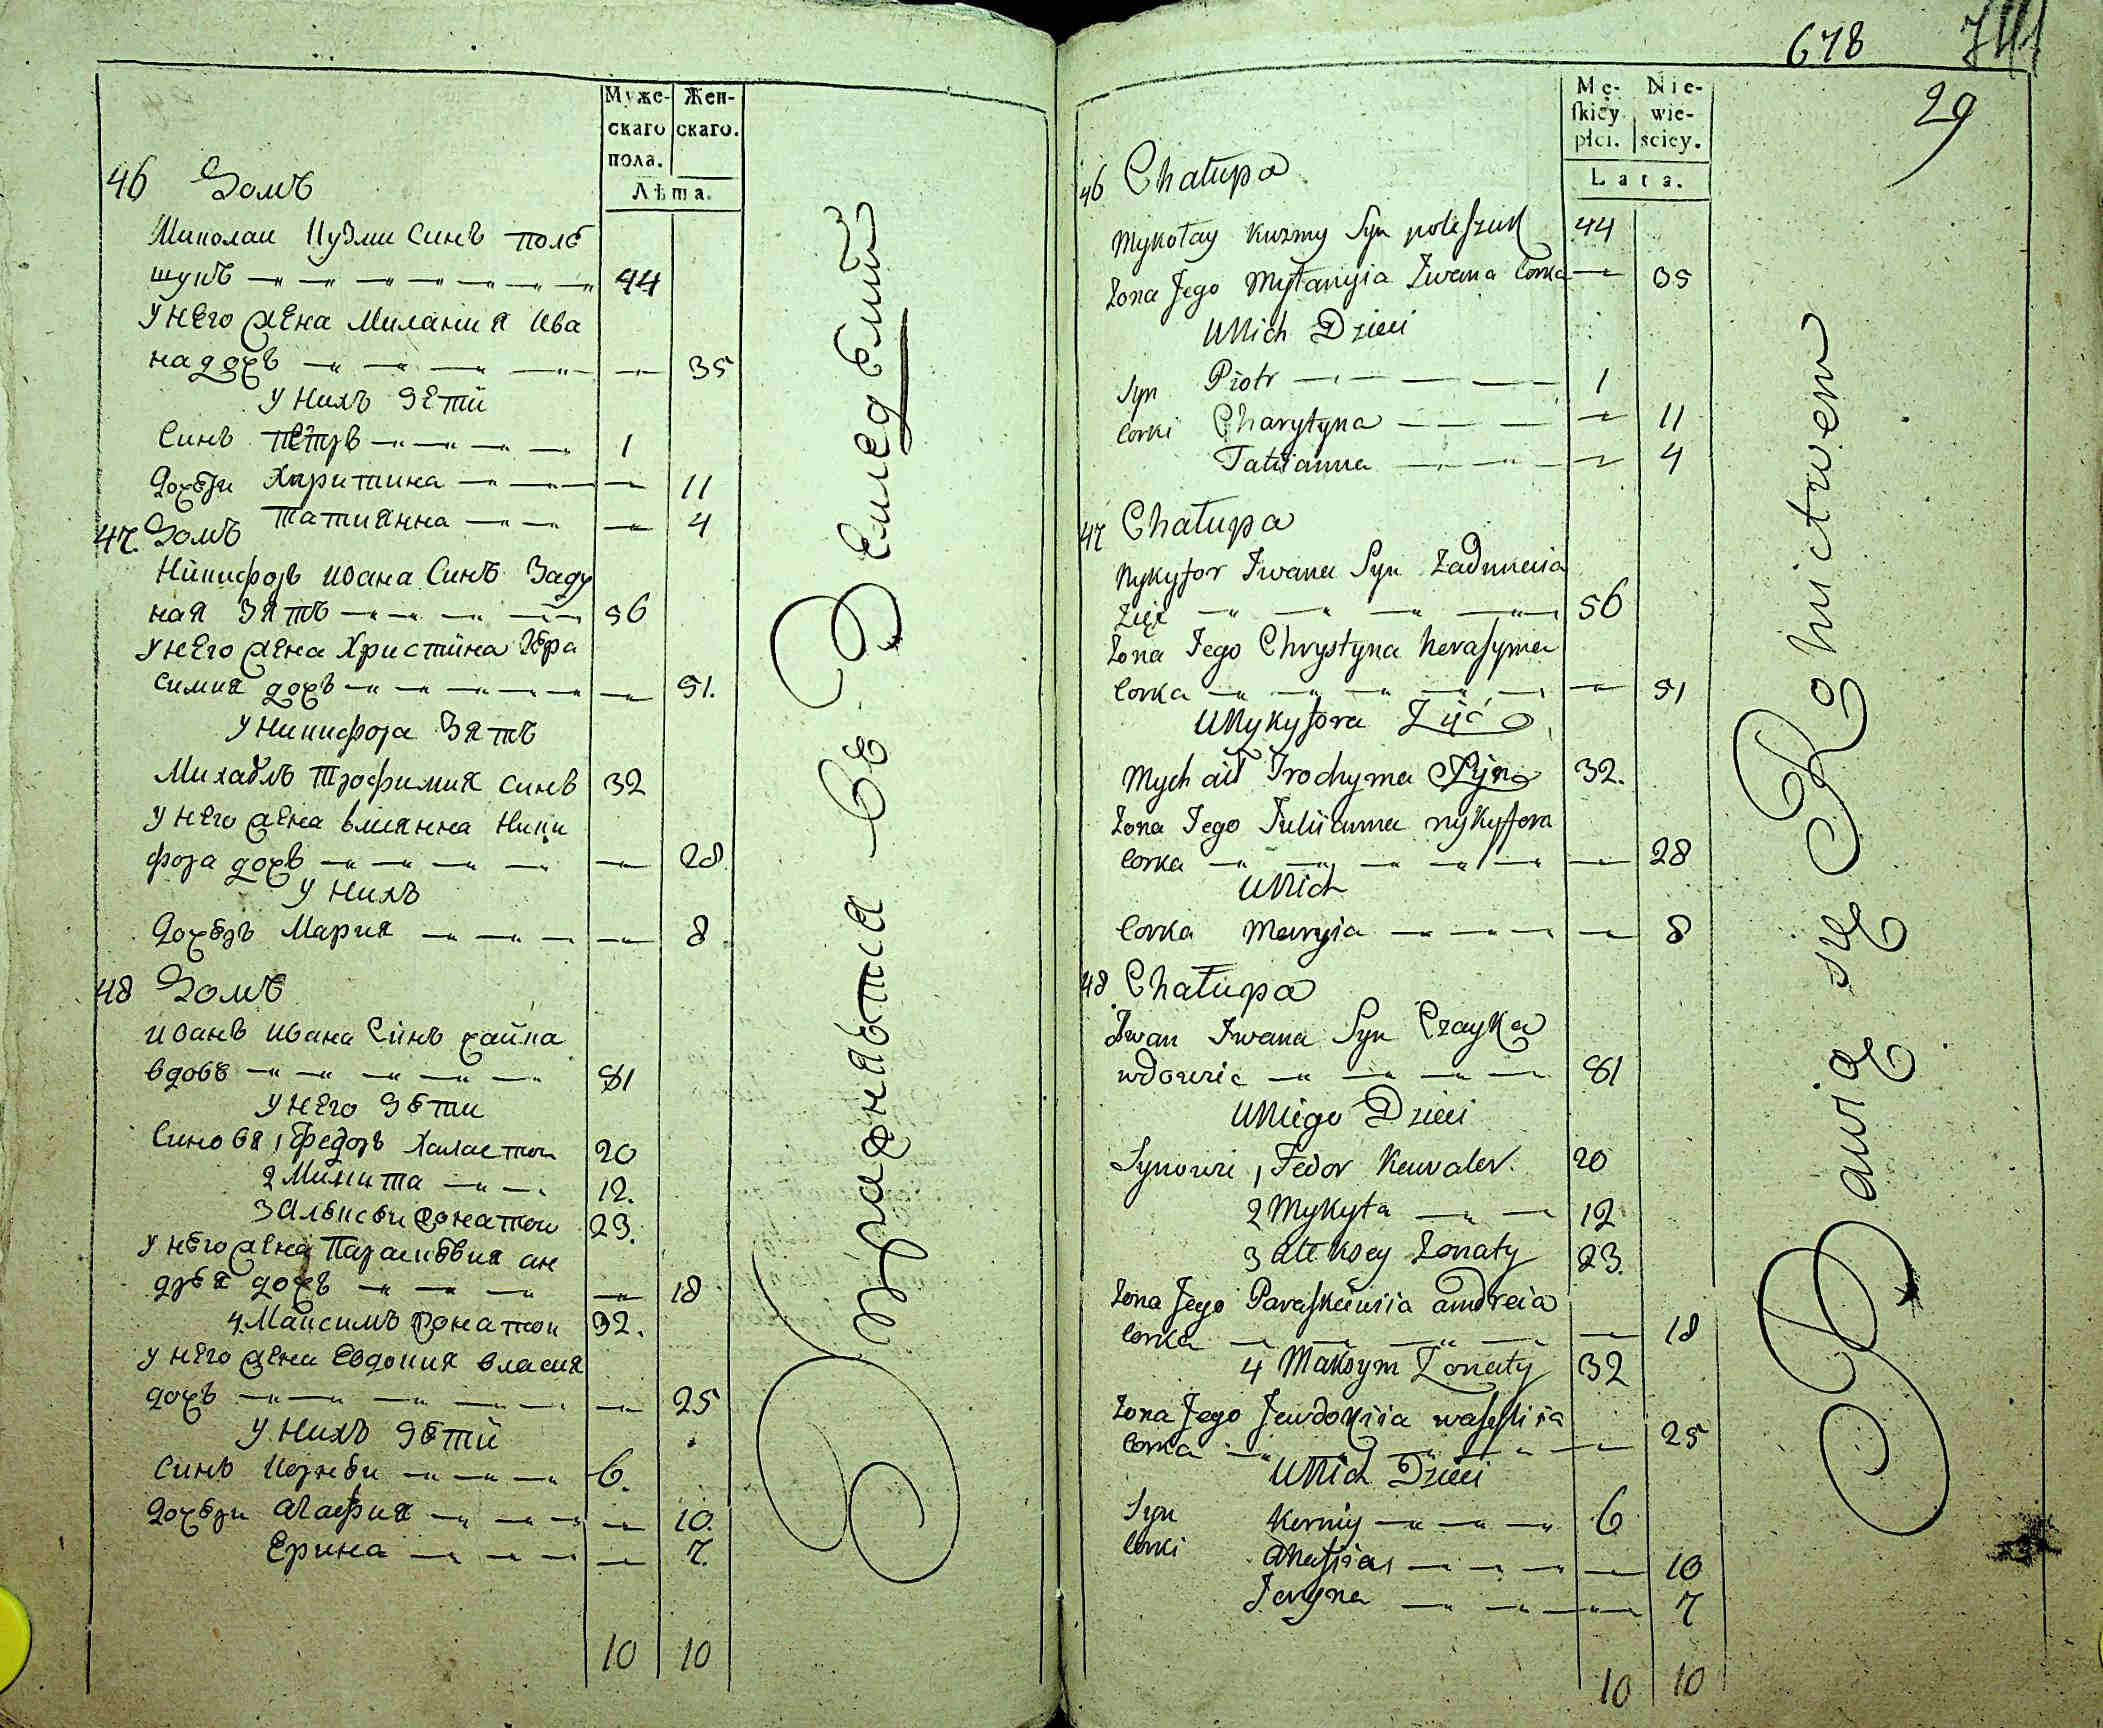 Муже-
скаго
пола.
Жен-
скаго.
Лѣта.
46 Домъ
Миколаи Кузми Синъ полѣ
шукъ 44
у него жена Милания Ива
на дочъ 35
у нихъ дѣти
Синъ Пётръ 1
дочѣри Харитина 11
Татиянна 4
47. Домъ
Никифоръ Ивана Синъ Заду
ная Зятъ 56
у него жена Христина Гера
симия дочъ 51.
у Никифора Зятъ
Михаѣлъ Трофимия Синъ 32
у него жена Влиянна Ники
фора дочъ 28
у нихъ
дочѣръ Мария 8
48 Домъ
Иванъ Ивана Синъ чайка
вдовѣ 81
у него дѣти
Синовя 1 Федоръ Халастои 20
2 Микита 12.
3 Алѣксѣи жонатои 23.
у нѣго жена Параскѣвия ан
дрѣя дочъ 18
4. Максимъ жонатои 32.
у него жена Евдокия власия
дочъ 25
у нихъ дѣти
Синъ Корнѣи 6.
дочѣри Агафия 10.
Ерина 7.
10 10
Упражнѣтца Вѣ Землед ѣлии
678
29
Mę-
skiey
płci.
Nie-
wie-
sciey.
Lata.
46 Chałupa
Mykołay Kuzmy Syn poleszuk 44
Zona Jego Myłanyia Iwana Corka 35
U Nich Dzieci
Syn Piotr 1
Corki Charytyna 11
Tatiianna 4
47 Chałupa
Nykyfor Iwana Syn Zadunaia
Zięć 56
Zona Jego Chrystyna Herasyma
Corka 51
U Nykyfora Zięć
Mychaił Trochyma Syn 32.
Zona Jego Juliianna nykyfora
Corka 28
U Nich
Corka Maryia 8
48 Chałupa
Iwan Iwana Syn Czayka
wdowic 81
U Niego Dzieci
Synowie 1 Fedor Kawaler. 20
2 Mykyta 12
3 Aleksey Zonaty 23.
Zona Jego Paraskewiia andreia
Corka 18
4 Maksym Zonaty 32
Zona Jego Jewdokiia wasyliia
Corka 25
U Nich Dzieci
Syn Korniy 6
Corki Ahafiia 10
Jaryna 7
10 10
Bawią się Rolnictwem